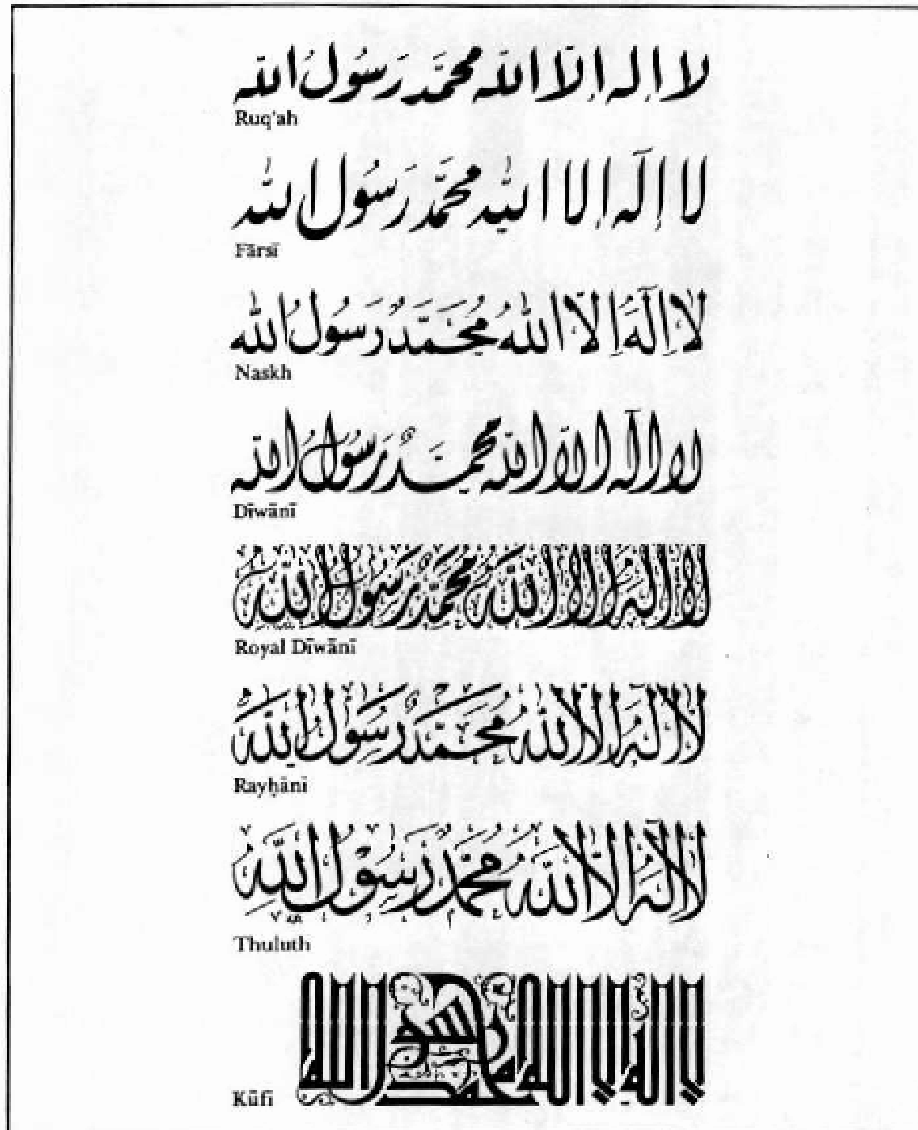 لا إله إلّا اللّه محمّد رَسُولُ اللّه
Ruq'ah
لا إلٓه إلا اللّٰه محمّد رَسُول اللّٰه
Fārsī
لَا اِلٰهَ اِلَّا اللّٰهُ مُحَمَّدٌ رَسُولُ اللّٰه
Naskh
لا اله الّا اللّه محمَّدٌ رَسُولُ اللّه
Dīwānī
لَا اِلٰهَ اِلَّا اللّٰهُ مُحَمَّدٌ رَسُولُ اللّٰهِ
Royal Dīwānī
لَا اِلٰهَ اِلَّا اللّٰهُ مُحَمَّدٌ رَسُوْلُ اللّٰهِ
Rayḥānī
لَا اِلٰهَ اِلَّا اللّٰهُ مُحَمَّدٌ رَسُوْلُ اللّٰهِ
Thuluth
لا اله الا الله محمد رسول الله
Kūfī